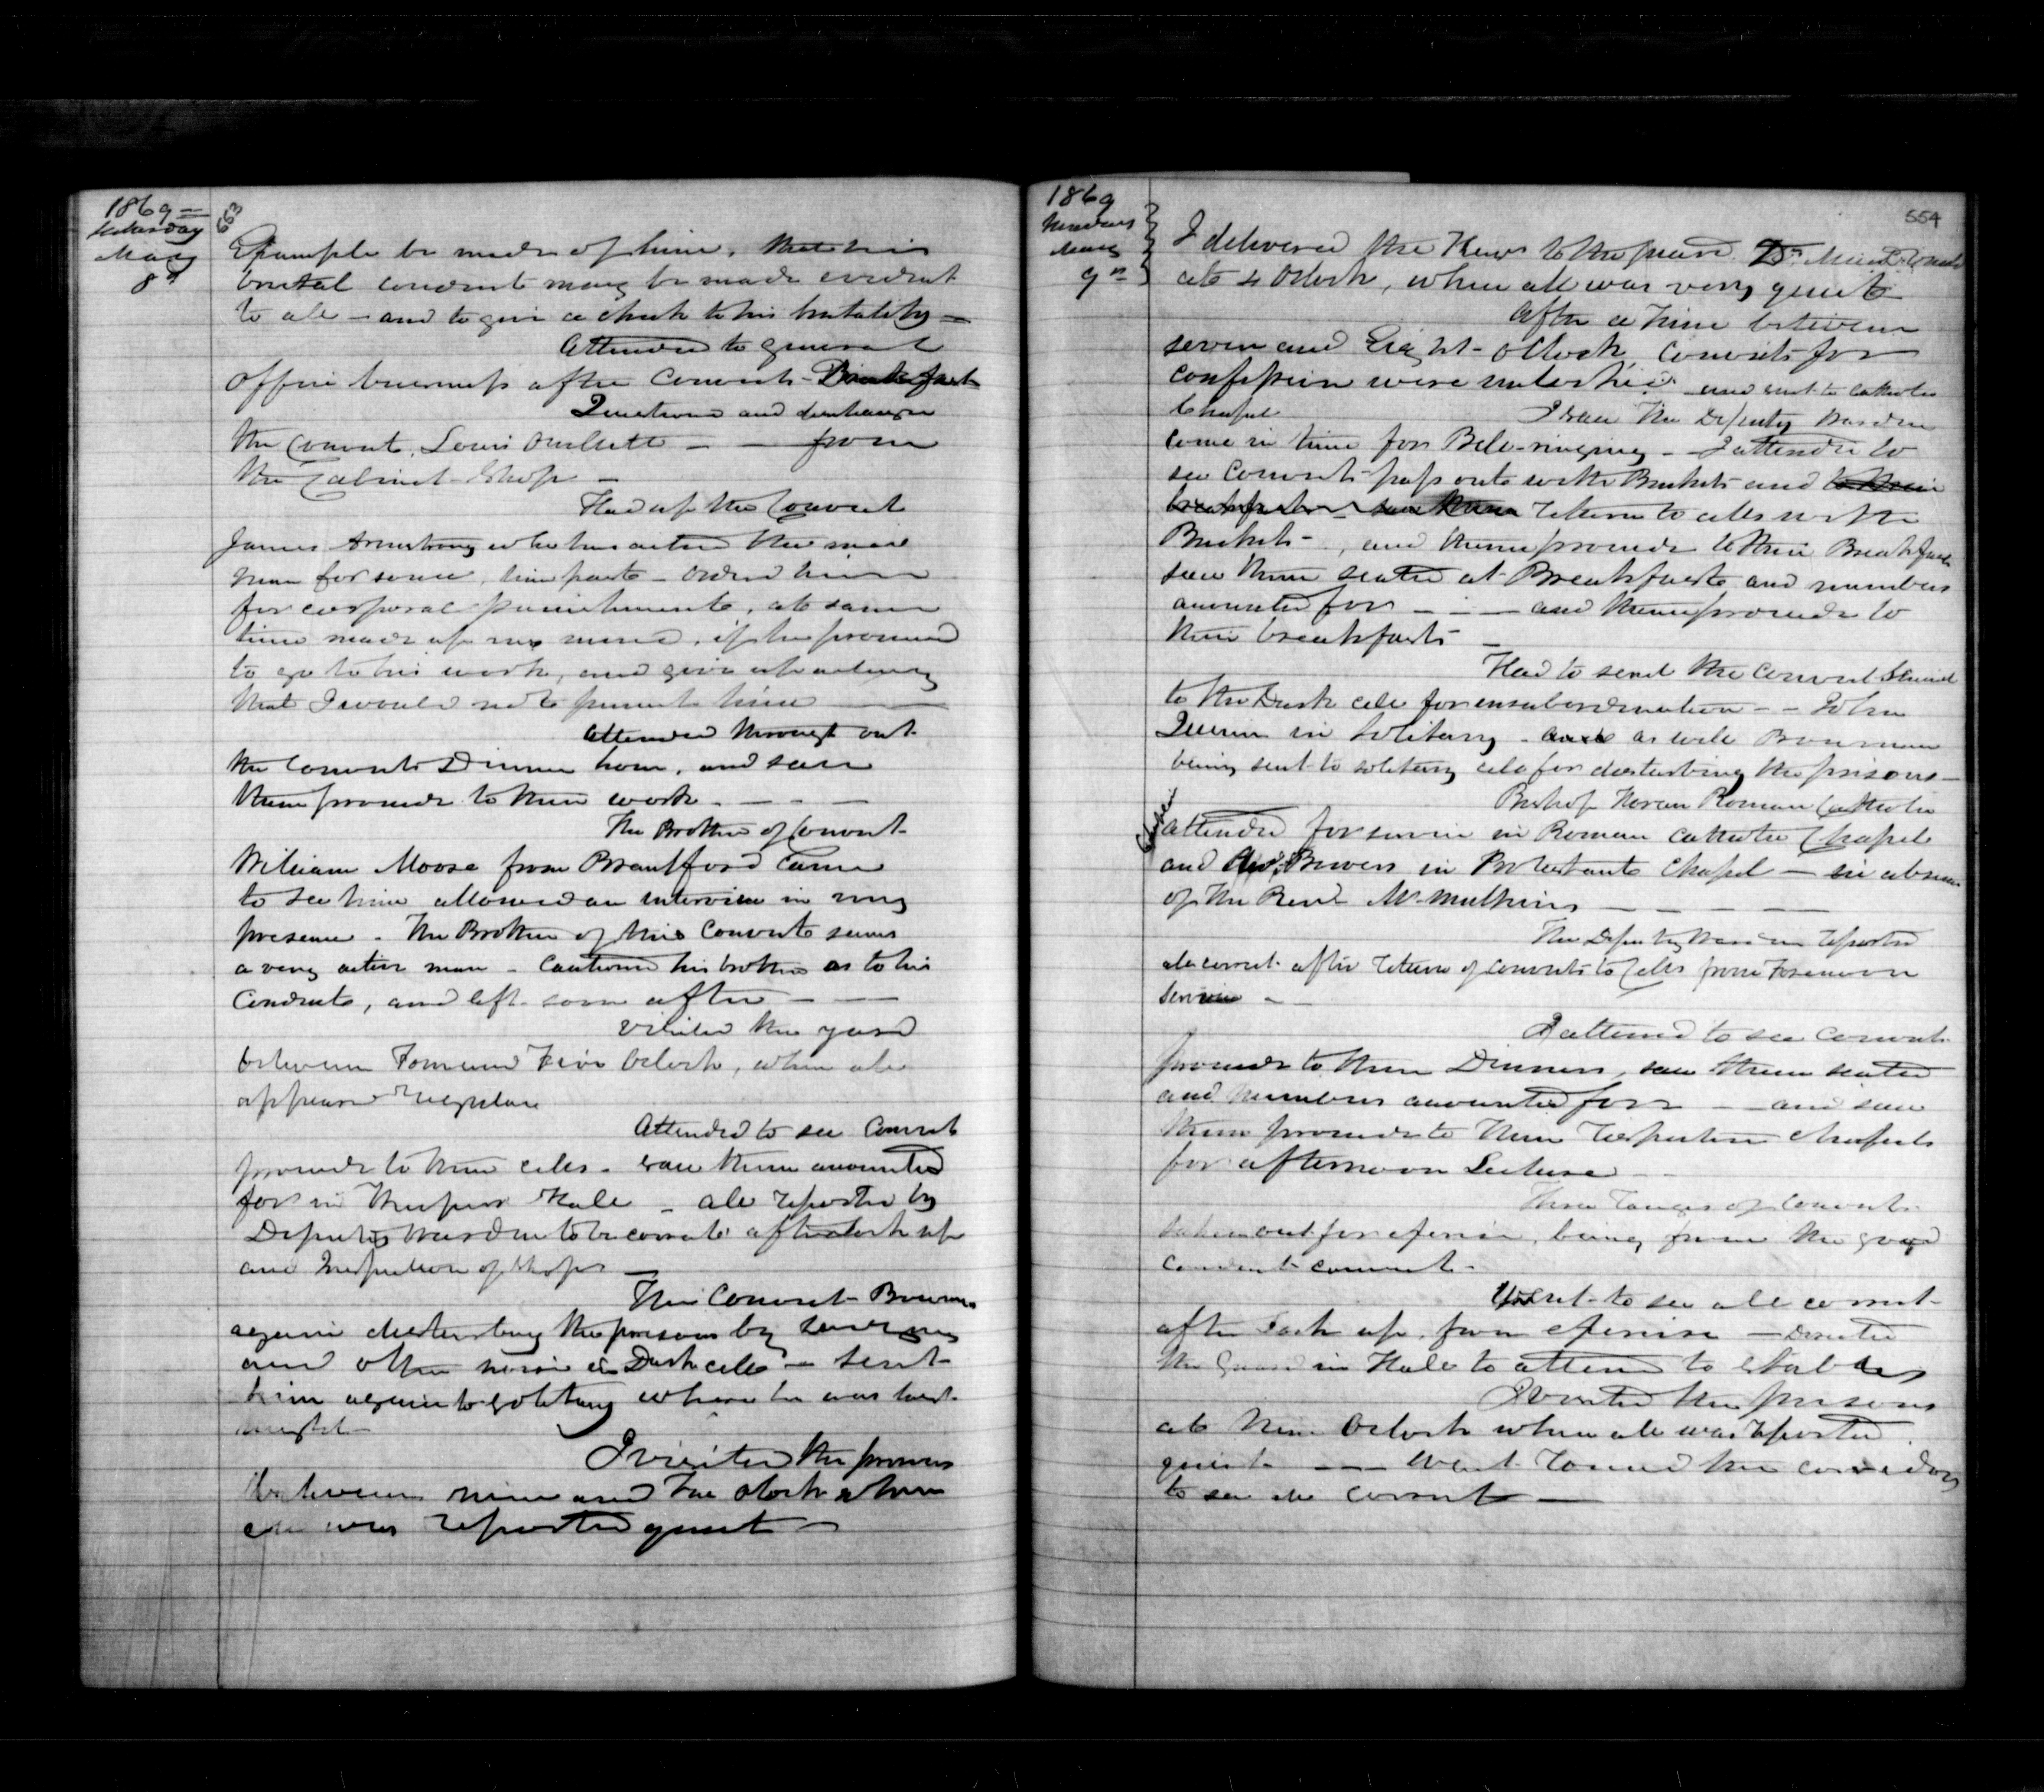 1869
Saturday
May
8th
553
Example be made of him, that his
brutal conduct may be made evident
to all - and to give a check to his brutality -
Attended to general
office business after Convicts Breakfast
Questioned and
the Convict, Louis Ouellette - - from
the Cabinet Shop -
Had up the Convict
James Armstrong who has acted the mad
man for some time past - ordered him
for corporal punishment, at same
time made up my mind, if he promised
to go to his work, and give up acting
that I would not punish him
Attended through out
the Convicts Dinner hour, and saw
them proceed to their work - - - -
The Brother of Convict
William Moose from Brantford Came
to see him allowed an interview in my
presence - The Brother of this Convict seems
a very active man - Cautioned his brother as to his
Conduct, and left soon after - -
Visited the yard
between Four and Five Oclock, when all
appeared Regular
Attended to see Convicts
proceed to their cells - saw them accounted
for in the upper Hall - all reported by
Deputy Warden to be correct after lock up
and Inspection of Shops -
The Convict Bowman
again disturbing the prison by
and other noise in Dark cell - sent
him again to solitary where he was last
night -
I visited the prison
between nine and Ten Oclock when
all was reported quiet -
1869
554
May
9th
I delivered the Keys to the guard
at 4 Oclock, when all was very quiet
After a time between
seven and Eight - oClock, Convicts for
confession were unlocked and sent to Catholic
Chapel
I saw the Deputy Warden
come in time for Bell ringing - I attended to
see Convicts pass out with Buckets and to their
breakfast - saw them return to cells with
Buckets - , and them proceed to their Breakfast
saw them seated at Breakfast and numbers
accounted for - - - and them proceed to
their breakfasts -
Had to send the Convict
to the Dark cell for insubordination - - John
in Solitary - and as well Bowman
being sent to solitary cell for disturbing the prison -
Bishop Horan Roman Catholic
attended for service in Roman Catholic Chapel
and Revd Brewers in Protestant Chapel - in absence
of the Revd Mr Mulkins - - - -
The Deputy Warden reported
all correct after return of Convicts to Cells from Forenoon
service - -
I attended to see Convicts
proceed to their Dinners, saw them seated
and numbers accounted for - - and saw
them proceed to their respective Chapels
for afternoon Lecture -
Three ranges of Convicts
taken out for exercise, being from the good
conduct convicts -
to see all correct
after Lock up, from exercise - Directed
the Guard in Hall to attend to Stables
I visited the prison
at Nine Oclock when all was reported
quiet - - - Went round the corridors
to see all correct -